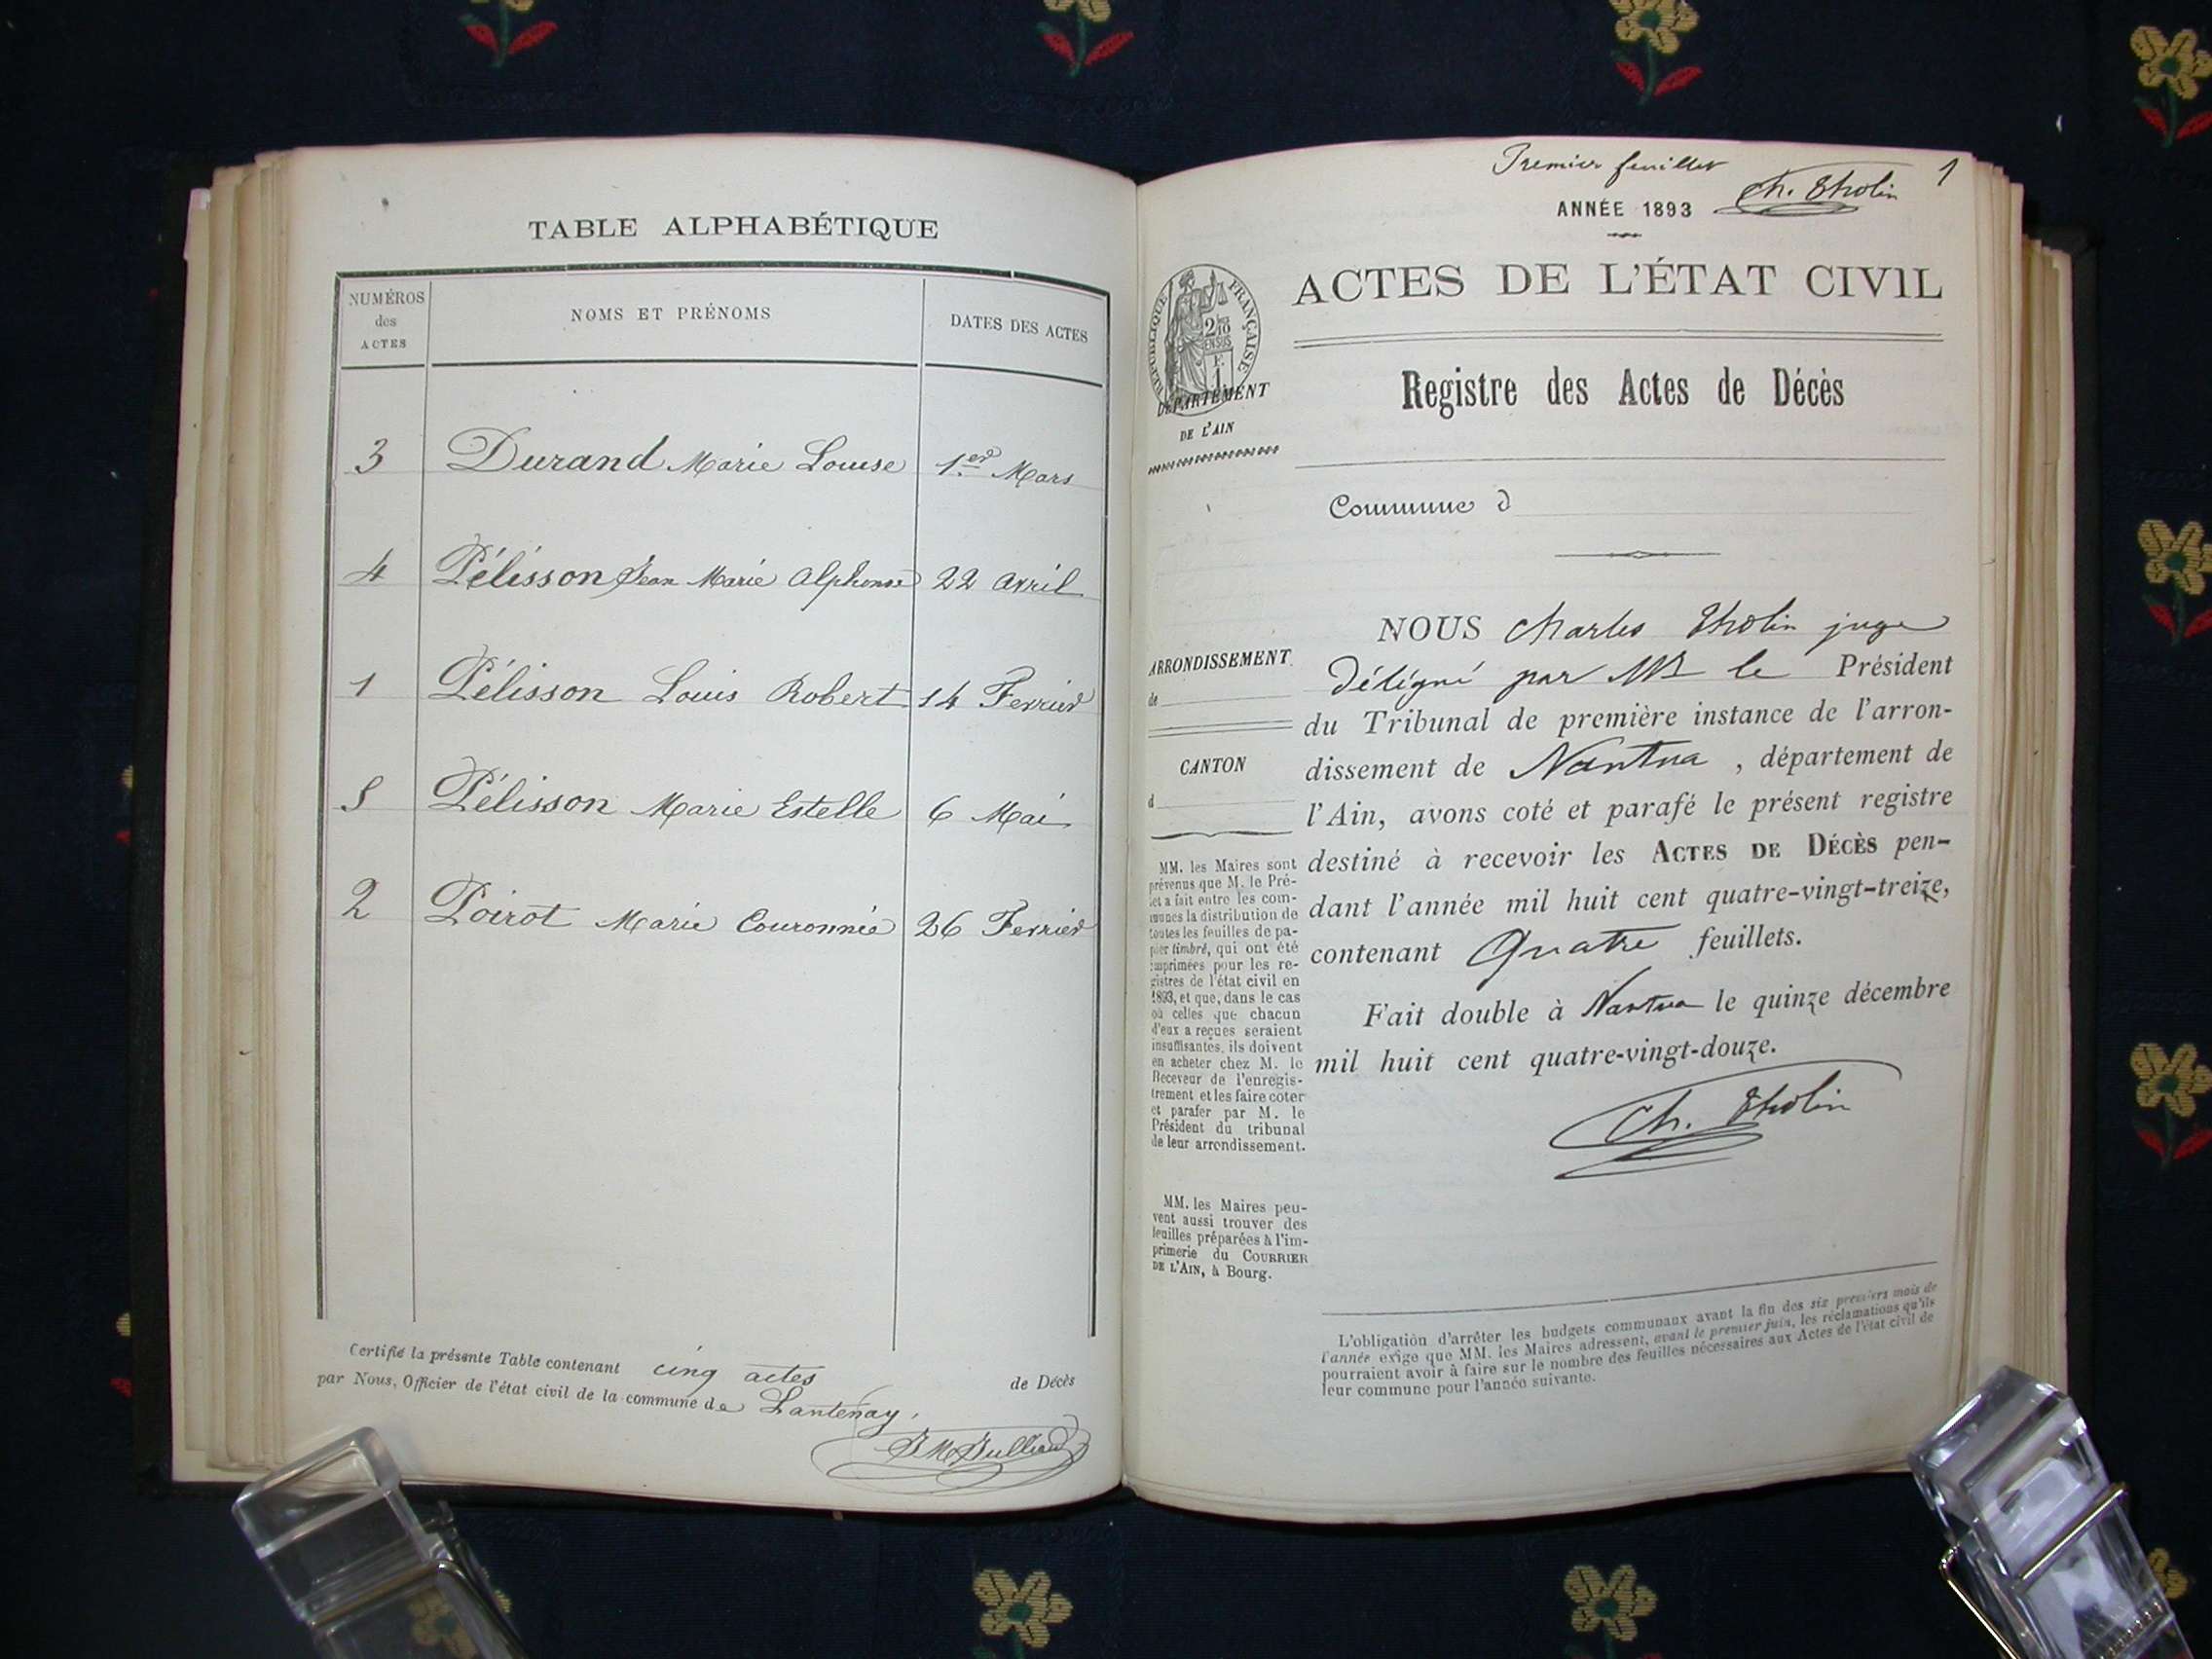 TABLE ALPHABÉTIQUE
NUMÉROS
des
ACTES
NOMS ET PRÉNOMS
DATES DES ACTES
3 Durand Marie Louise 1.er Mars
4 Pélisson Jean Marie Alphonse 22 Avril
1 Pélisson Louis Robert 14 Fevrier
5 Pélisson Marie Estelle 6 Mai
2 Poirot Marie Couronnée 26 Fevrier
Certifié la présente Table contenant cinq actes de Décès
par Nous, Officier de l'état civil de la commune de Lantenay.
Premier feuillet
1
Ch. Tholin
ANNÉE 1893
RÉPUBLIQUE FRANÇAISE
2/10
EN SUS
F.
1
DÉPARTEMENT
DE L'AIN
ACTES DE L'ÉTAT CIVIL
Registre des Actes de Décès
Commune d
ARRONDISSEMENT
de
CANTON
d
MM. les Maires sont
prévenus que M. le Pré-
fet a fait entre les com-
munes la distribution de
toutes les feuilles de pa-
pier timbré, qui ont été
imprimées pour les re-
gistres de l'état civil en
1893, et que, dans le cas
où celles que chacun
d'eux a reçues seraient
insuffisantes, ils doivent
en acheter chez M. le
Receveur de l'enregis-
trement et les faire coter
et parafer par M. le
Président du tribunal
de leur arrondissement.
MM. les Maires peu-
vent aussi trouver des
feuilles préparées à l'im-
primerie du COURRIER
DE L'AIN, à Bourg.
NOUS Charles Tholin juge
délégué par Mr le Président
du Tribunal de première instance de l'arron-
dissement de Nantua, département de
l'Ain, avons coté et parafé le présent registre
destiné à recevoir les ACTES DE DÉCÈS pen-
dant l'année mil huit cent quatre-vingt-treize,
contenant Quatre feuillets.
Fait double à Nantua le quinze décembre
mil huit cent quatre-vingt-douze.
Ch. Tholin
L'obligation d'arrêter les budgets communaux avant la fin des six premiers mois de
l'année exige que MM. les Maires adressent, avant le premier juin, les réclamations qu'ils
pourraient avoir à faire sur le nombre des feuilles nécessaires aux Actes de l'état civil de
leur commune pour l'année suivante.